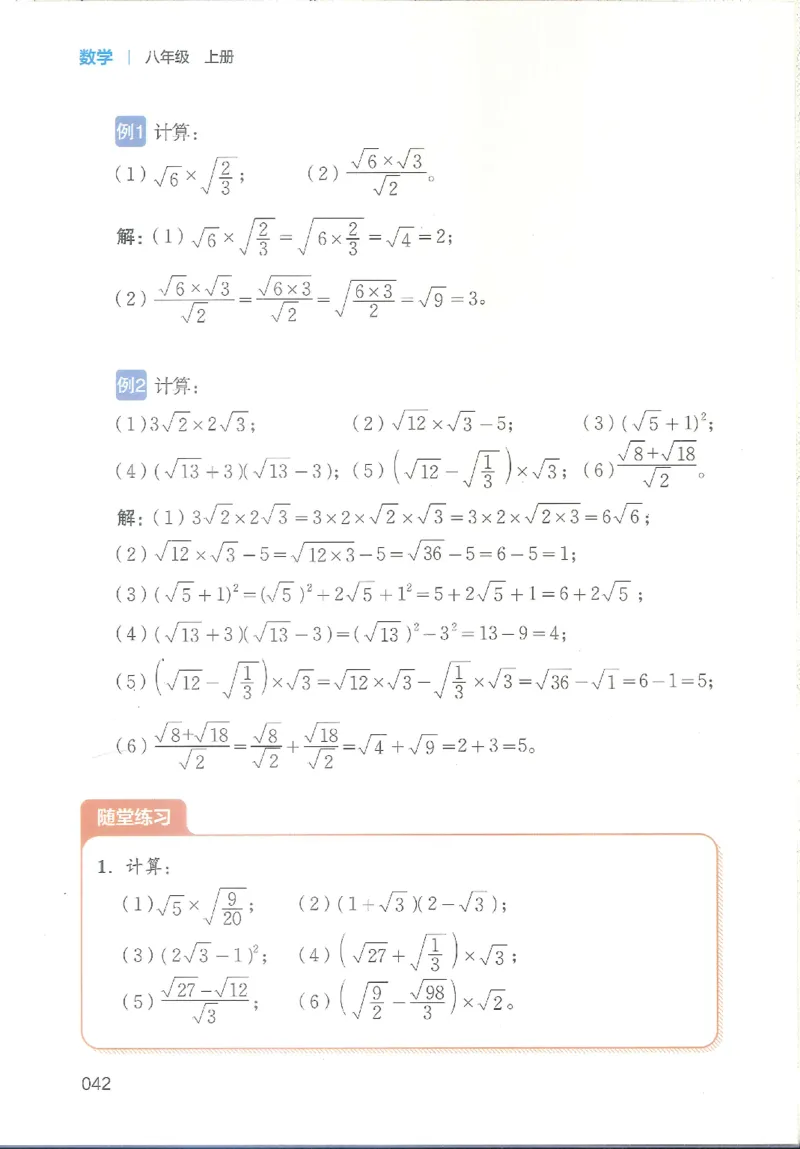 数学 | 八年级 上册
例1 计算：
(1) √6 × √(2/3)； (2) (√6×√3)/√2。
解：(1) √6 × √(2/3) = √(6×2/3) = √4 = 2；
(2) (√6×√3)/√2 = √(6×3)/√2 = √((6×3)/2) = √9 = 3。
例2 计算：
(1) 3√2×2√3； (2) √12×√3－5； (3) (√5＋1)²；
(4) (√13＋3)(√13－3)； (5) (√12－√(1/3))×√3； (6) (√8＋√18)/√2。
解：(1) 3√2×2√3＝3×2×√2×√3＝3×2×√(2×3)＝6√6；
(2) √12×√3－5＝√(12×3)－5＝√36－5＝6－5＝1；
(3) (√5＋1)²＝(√5)²＋2√5＋1²＝5＋2√5＋1＝6＋2√5；
(4) (√13＋3)(√13－3)＝(√13)²－3²＝13－9＝4；
(5) (√12－√(1/3))×√3＝√12×√3－√(1/3)×√3＝√36－√1＝6－1＝5；
(6) (√8＋√18)/√2＝√8/√2＋√18/√2＝√4＋√9＝2＋3＝5。
随堂练习
1. 计算：
(1) √5×√(9/20)； (2) (1＋√3)(2－√3)；
(3) (2√3－1)²； (4) (√27＋√(1/3))×√3；
(5) (√27－√12)/√3； (6) (√(9/2)－√98/3)×√2。
042